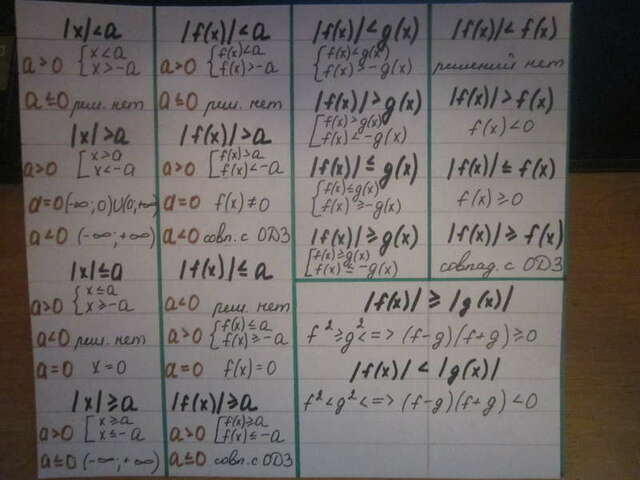 |x|<a
a>0 { x<a
x>-a
a≤0 реш. нет
|x|>a
a>0 [ x>a
x<-a
a=0 (-∞;0)∪(0;+∞)
a<0 (-∞;+∞)
|x|≤a
a>0 { x≤a
x≥-a
a<0 реш. нет
a=0 x=0
|x|≥a
a>0 [ x≥a
x≤-a
a≤0 (-∞;+∞)
|f(x)|<a
a>0 { f(x)<a
f(x)>-a
a≤0 реш. нет
|f(x)|>a
a>0 [ f(x)>a
f(x)<-a
a=0 f(x)≠0
a<0 совп. с ОДЗ
|f(x)|≤a
a<0 реш. нет
a>0 { f(x)≤a
f(x)≥-a
a=0 f(x)=0
|f(x)|≥a
a>0 [ f(x)≥a
f(x)≤-a
a≤0 совп. с ОДЗ
|f(x)|<g(x)
{ f(x)<g(x)
f(x)>-g(x)
|f(x)|>g(x)
[ f(x)>g(x)
f(x)<-g(x)
|f(x)|≤g(x)
{ f(x)≤g(x)
f(x)≥-g(x)
|f(x)|≥g(x)
[ f(x)≥g(x)
f(x)≤-g(x)
|f(x)|<f(x)
решений нет
|f(x)|>f(x)
f(x)<0
|f(x)|≤f(x)
f(x)≥0
|f(x)|≥f(x)
совпад. с ОДЗ
|f(x)|≥|g(x)|
f²≥g²<=>(f-g)(f+g)≥0
|f(x)|<|g(x)|
f²<g²<=>(f-g)(f+g)<0